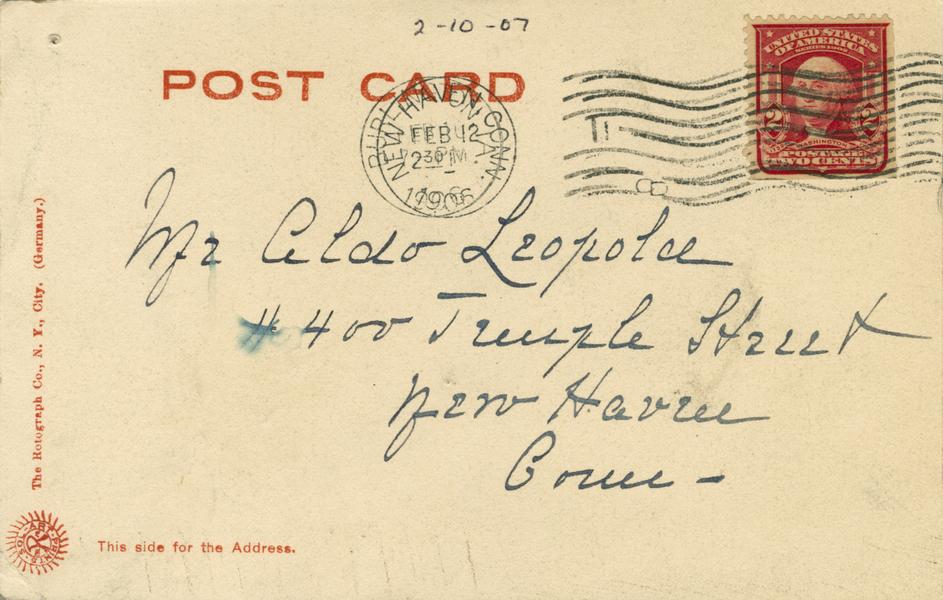 2-10-07
POST CARD
NEW HAVEN, CONN.
FEB 12
2 30 PM
1906
UNITED STATES
OF AMERICA
SERIES 1902
2 2
WASHINGTON
POSTAGE
TWO CENTS
Mr Aldo Leopold
# 400 Temple Street
New Haven
Conn-
The Rotograph Co., N. Y., City. (Germany.)
This side for the Address.